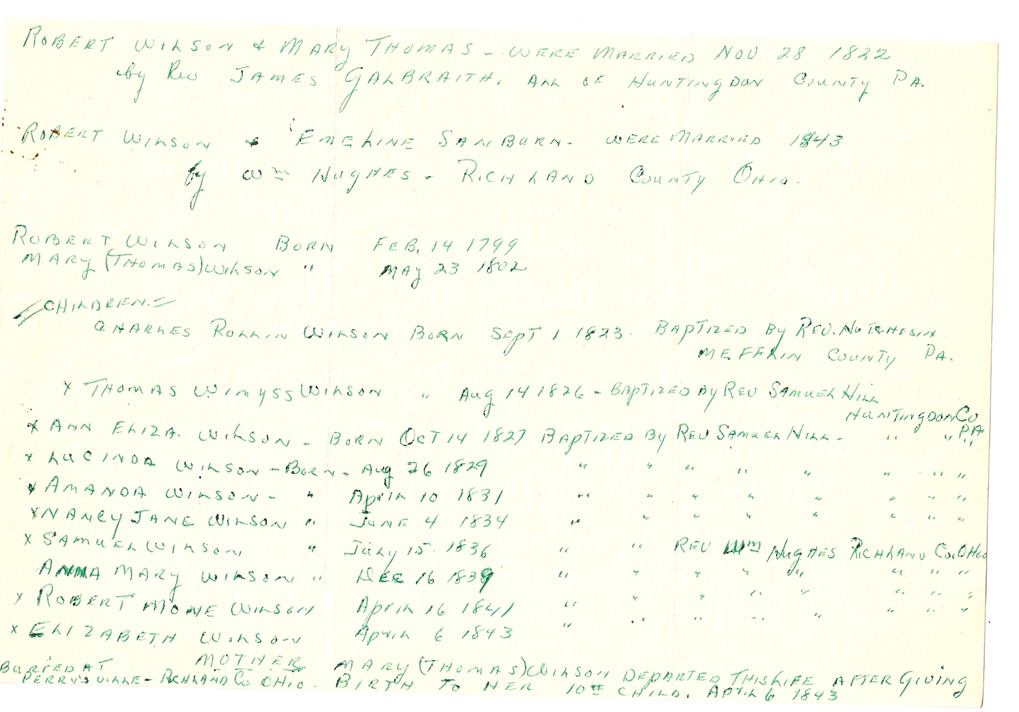 ROBERT WILSON & MARY THOMAS - WERE MARRIED NOV 28 1822
by Rev JAMES GALBRAITH. ALL OF HUNTINGDON COUNTY PA.
ROBERT WILSON & EMELINE SANBURN - WERE MARRIED 1843
by Wm HUGHES - RICHLAND COUNTY OHIO.
ROBERT WILSON BORN FEB. 14 1799
MARY (THOMAS) WILSON " MAY 23 1802
CHILDREN =
CHARLES ROLLIN WILSON BORN SEPT 1 1823. BAPTIZED BY REV.
MEFFLIN COUNTY PA.
x THOMAS WIMYSS WILSON " Aug 14 1826 - BAPTIZED By REV SAMUEL HILL
HUNTINGDON Co
x ANN ELIZA. WILSON - BORN OCT 14 1827 BAPTIZED By REV SAMUEL HILL - " " PA
x LUCINDA WILSON - BORN - Aug 26 1829 " " " " " " " " "
x AMANDA WILSON - " April 10 1831 " " " " " " " " "
x NANCY JANE WILSON " JUNE 4 1834 " " " " " " " " "
x SAMUEL WILSON " JULY 15 1836 " " REV Wm HUGHES RICHLAND Co. OHIO
ANNA MARY WILSON " DEC 16 1839 " " " " " " " "
x ROBERT MONE WILSON APRIL 16 1841 " " " " " " " "
x ELIZABETH WILSON APRIL 6 1843 " " " " " " " "
MOTHER MARY (THOMAS) WILSON DEPARTED THIS LIFE AFTER GIVING
BURIED AT
PERRYSVILLE - RICHLAND Co OHIO. BIRTH TO HER 10TH CHILD. APRIL 6 1843